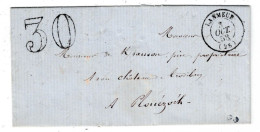 30
LANMEUR
7
OCT.
53
(28)
Monsieur
Monsieur de K père propriétaire
à son château de
A Plouézoch